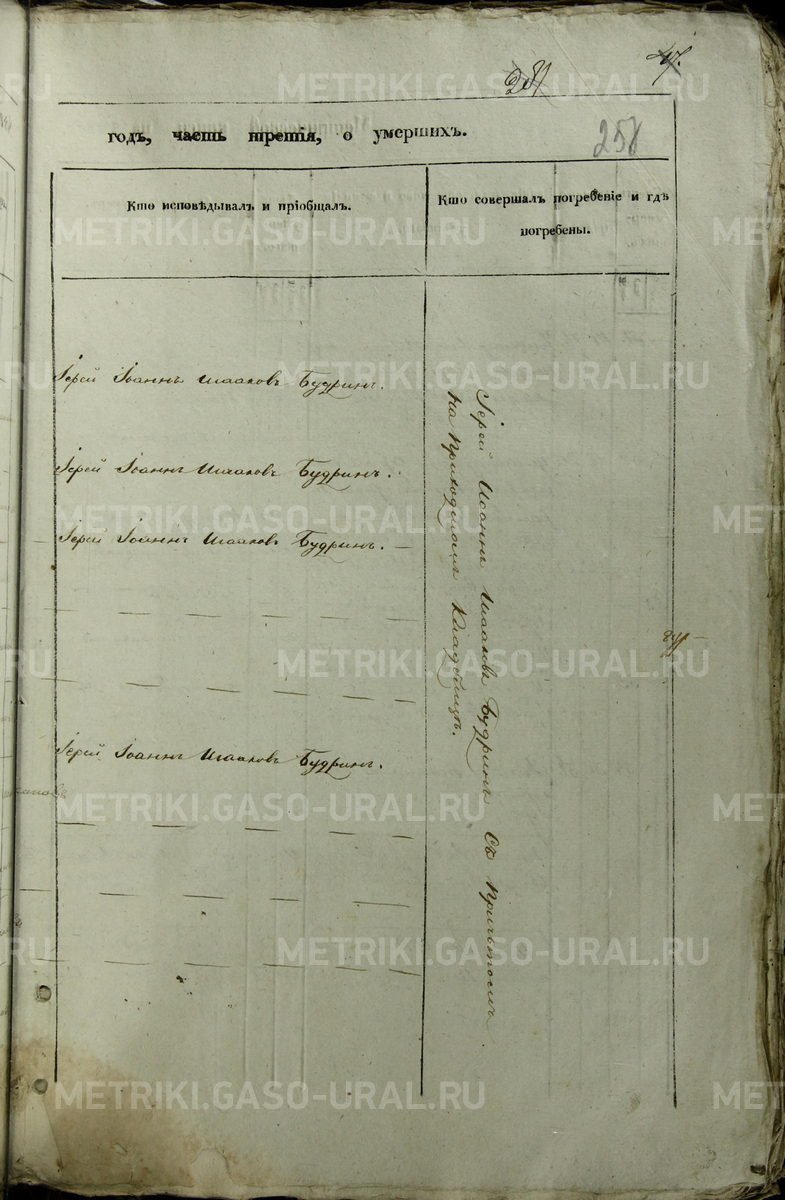 47.
251
258
годъ, часть третія, о умершихъ.
Кто исповѣдывалъ и пріобщалъ.
Кто совершалъ погребеніе и гдѣ
погребены.
Іерей Іоаннъ Исааковъ Будринъ.
Іерей Іоаннъ Исааковъ Будринъ.
Іерей Іоаннъ Исааковъ Будринъ. —
Іерей Іоаннъ Исааковъ Будринъ.
Іерей Иоаннъ Исааковъ Будринъ Съ Причьтомъ
на Приходскомъ Кладбищѣ.
METRIKI.GASO-URAL.RU